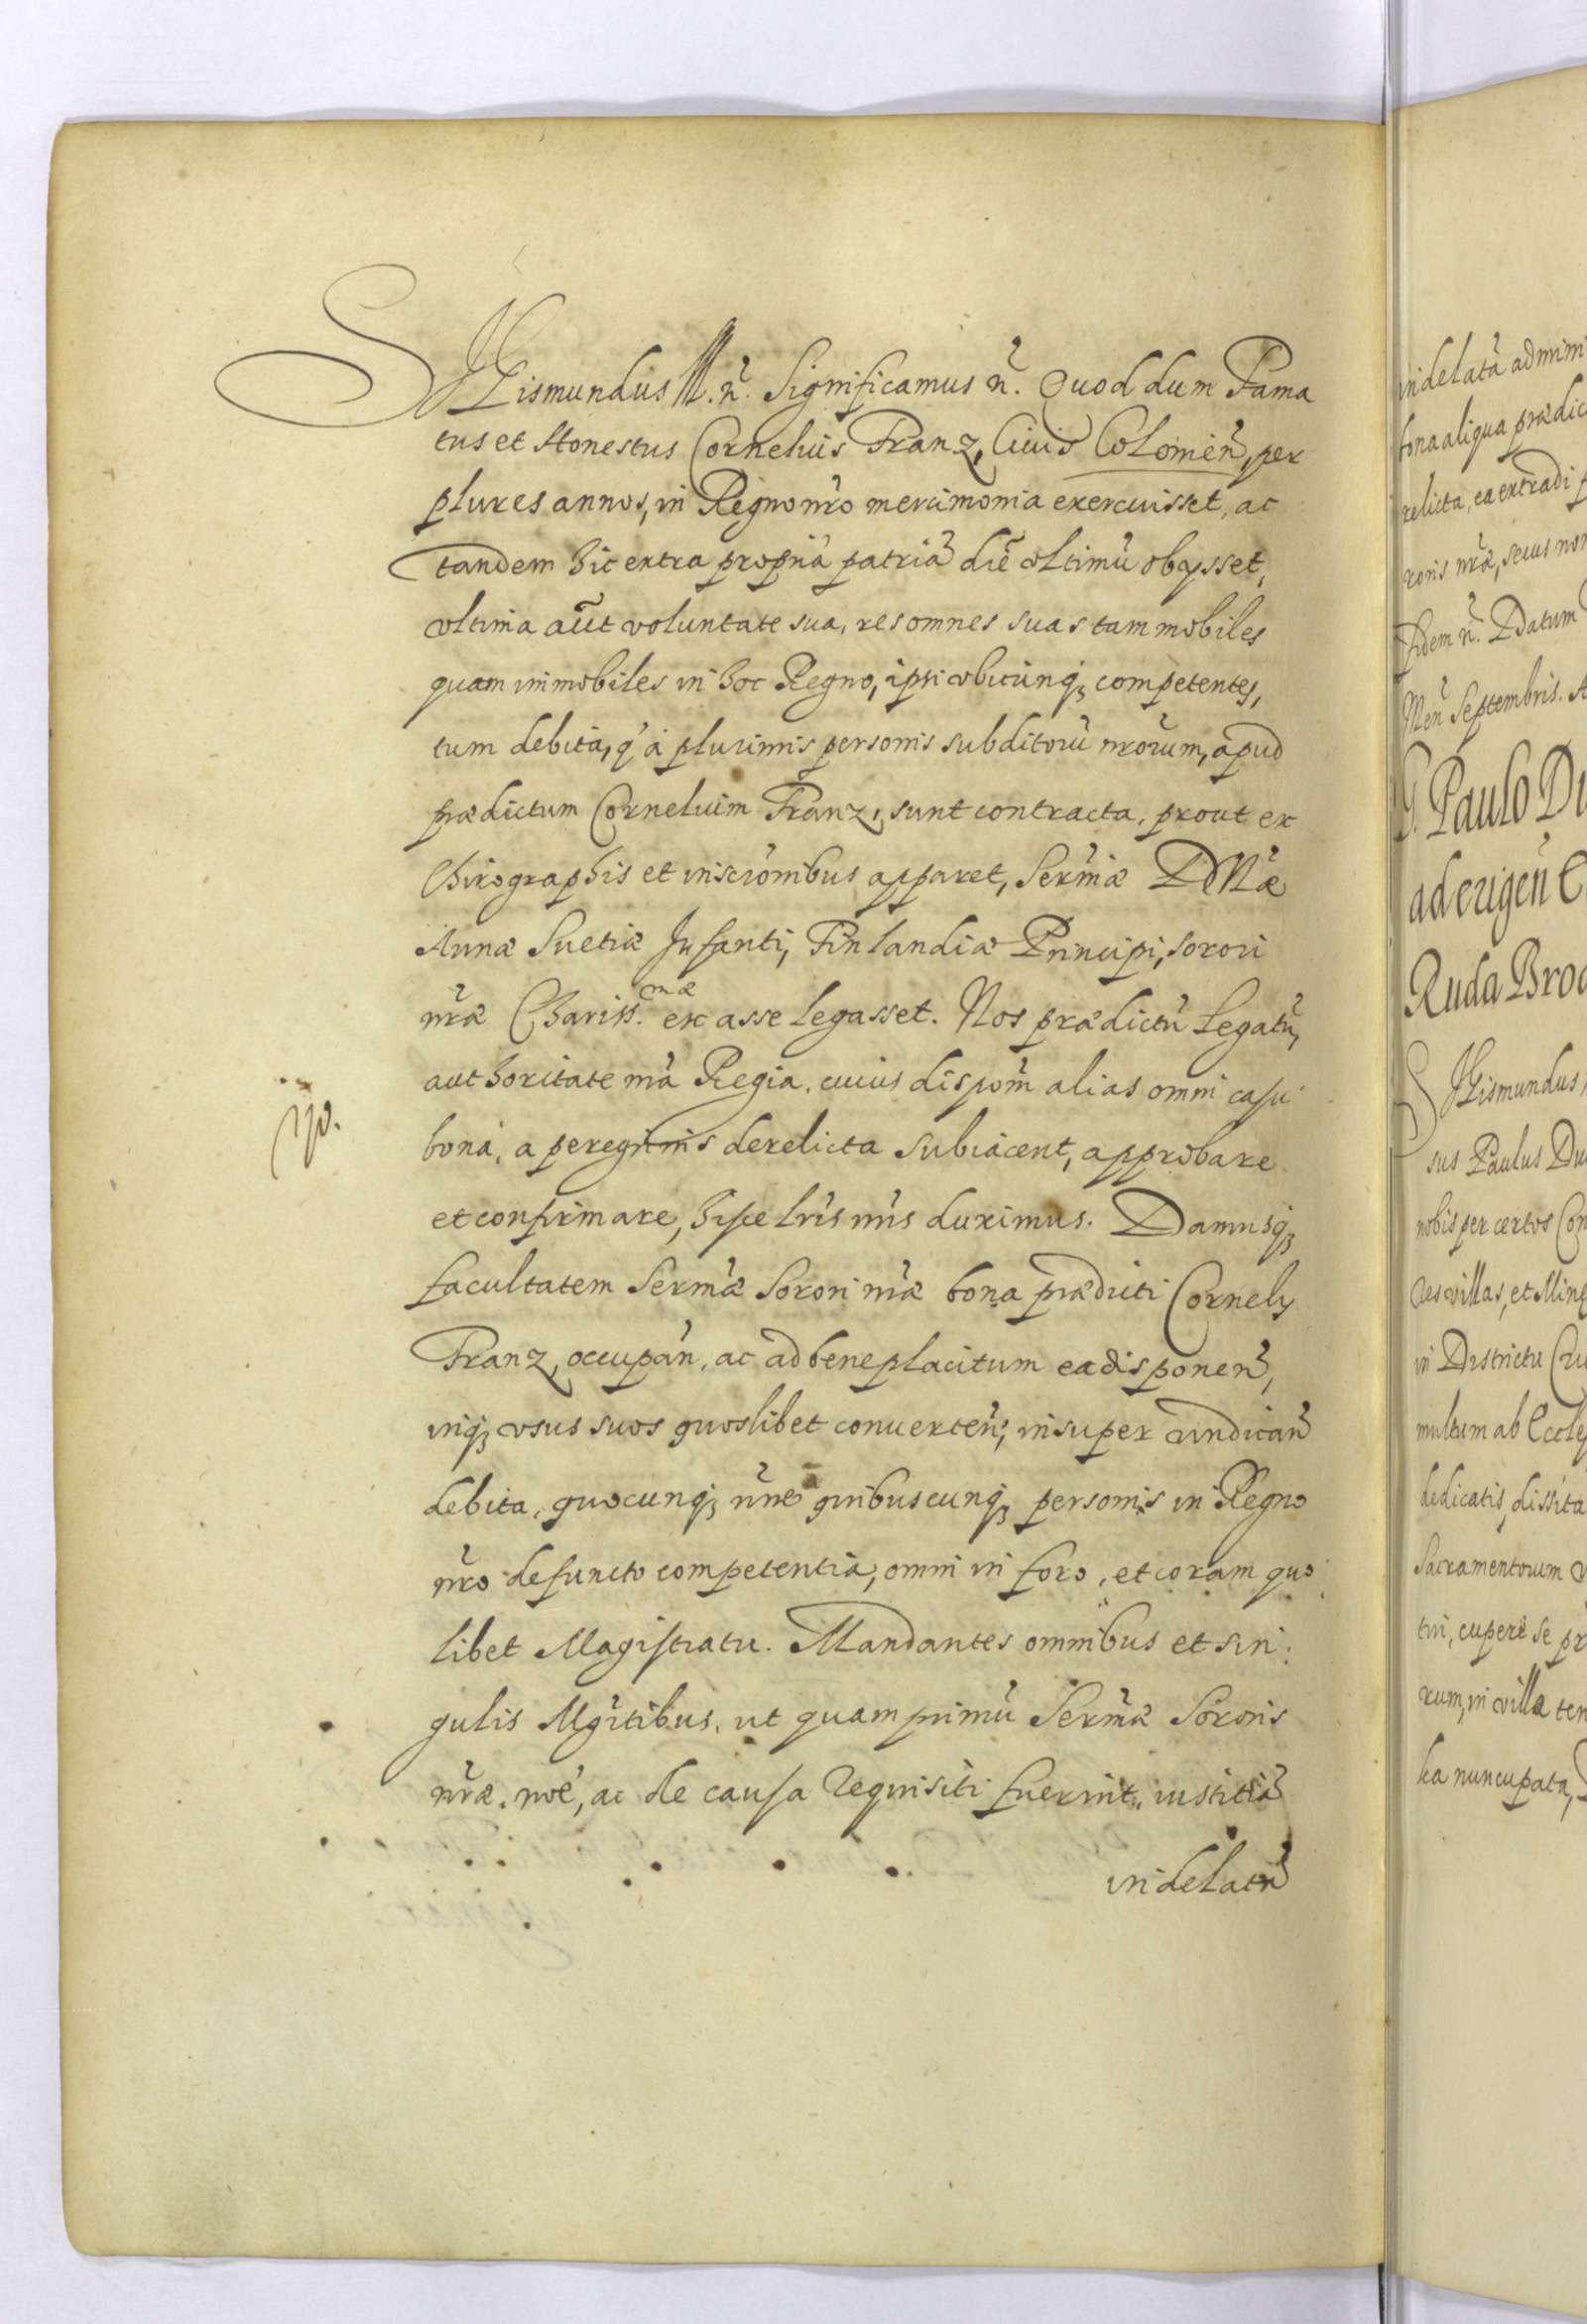 SIGismundus III. n̄. Significamus n̄. Quod dum Fama
tus et Honestus Cornelius Franz, Ciuis Colomien̄, per
plures annos, in Regno nr̄o mercimonia exercuisset, ac
tandem hic extra propriā patriā diē vltimū obijsset,
vltima aūt voluntate sua, res omnes suas tam mobiles
quam immobiles in hoc Regno, ipsi vbicunq; competentes,
tum debita, q̄ à plurimis personis subditorū nr̄orum, apud
prædictum Cornelium Franz, sunt contracta, prout ex
Chirographis et inscr̄onibus apparet, Serm̄æ DNæ
Annæ Suetiæ Infanti, Finlandiæ Principi, sorori
nr̄æ Chariss.mæ ex asse legasset. Nos prædictū legatū,
authoritate nr̄a Regia, cuius dispom̄ alias omni casu
bona, a peregrinis derelicta subiacent, approbare
et confirmare, hisce lr̄is nr̄is duximus. Damusq;
facultatem Serm̄æ Sorori nr̄æ bona prædicti Cornelij
Franz, occupan̄, ac ad beneplacitum ea disponen̄,
inq; vsus suos quoslibet conuerten̄; insuper vindican̄
debita, quocunq; nn̄e à quibuscunq; personis in Regno
nr̄o defuncto competentia, omni in foro, et coram quo
libet Magistratu. Mandantes omnibus et sin:
gulis Mgr̄tibus, ut quam primū Serm̄æ Sororis
nr̄æ, noē, ac de causa requisiti fuerint, iustitiā
indelatā
indelatā admini
bona aliqua prædic
relicta, ea extradi f
roris nr̄æ, secus non
Fidem n̄. Datum
Men̄ Septembris. A
G. Paulo Du
ad erigen̄ C
Ruda Broc
SIGismundus,
sus Paulus Du
nobis per certos Com
res villas, et Mine
in Districtu Cru
multum ab Eccle
dedicatis, dissita
Sacramentorum v
tui, cupere se pr
rum, in villa ten
ka nuncupata,